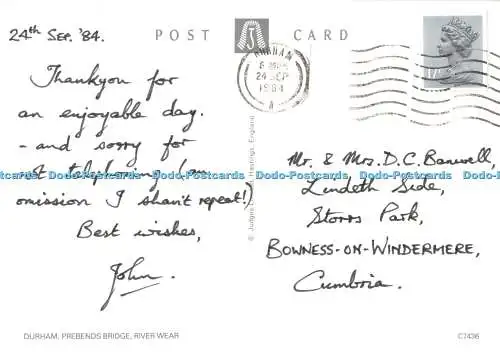 24th SEP. '84.
POST CARD
DURHAM
24 SEP
1984
A
17
Thankyou for
an enjoyable day.
- and sorry for
not telephoning (an
omission I shan't repeat!)
Best wishes,
John.
© Judges Hastings, England
Mr. & Mrs. D.C.
Lindeth Side,
Storrs Park,
BOWNESS-ON-WINDERMERE,
Cumbria.
Dodo-Postcards Dodo-Postcards Dodo-Postcards Dodo-Postcards Dodo-Postcards
DURHAM, PREBENDS BRIDGE, RIVER WEAR
C7436